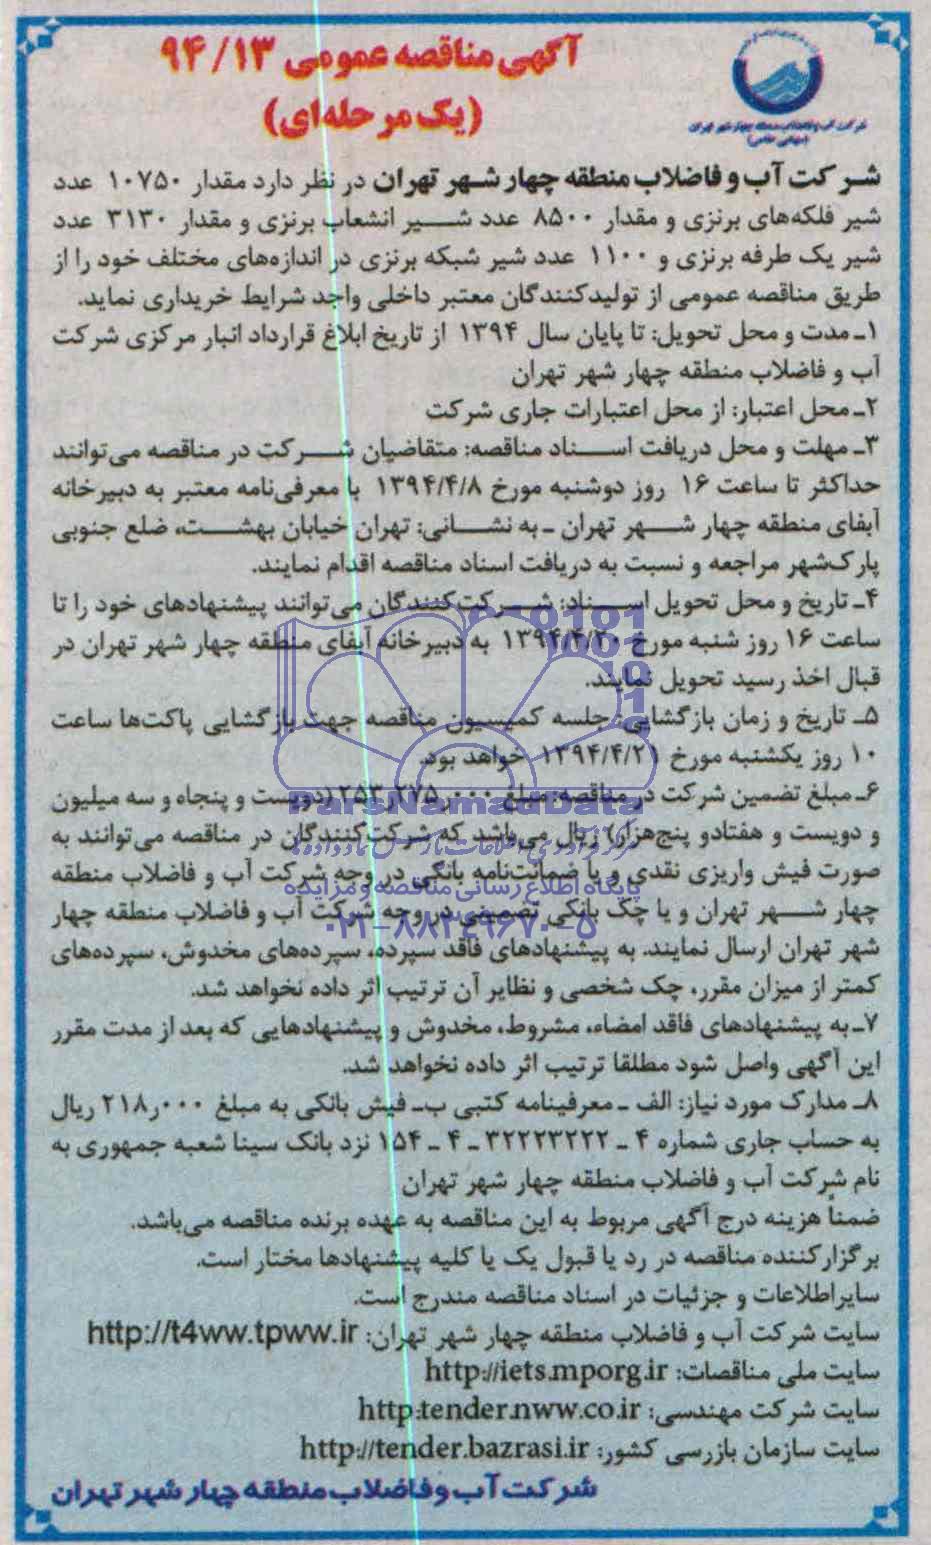 آگهی مناقصه عمومی ۹۴/۱۳
(یک مرحله‌ای)
شرکت آب و فاضلاب منطقه چهار شهر تهران
(سهامی خاص)
شرکت آب و فاضلاب منطقه چهار شهر تهران در نظر دارد مقدار ۱۰۷۵۰ عدد
شیر فلکه‌های برنزی و مقدار ۸۵۰۰ عدد شیر انشعاب برنزی و مقدار ۳۱۳۰ عدد
شیر یک طرفه برنزی و ۱۱۰۰ عدد شیر شبکه برنزی در اندازه‌های مختلف خود را از
طریق مناقصه عمومی از تولیدکنندگان معتبر داخلی واجد شرایط خریداری نماید.
۱ـ مدت و محل تحویل: تا پایان سال ۱۳۹۴ از تاریخ ابلاغ قرارداد انبار مرکزی شرکت
آب و فاضلاب منطقه چهار شهر تهران
۲ـ محل اعتبار: از محل اعتبارات جاری شرکت
۳ـ مهلت و محل دریافت اسناد مناقصه: متقاضیان شرکت در مناقصه می‌توانند
حداکثر تا ساعت ۱۶ روز دوشنبه مورخ ۱۳۹۴/۴/۸ با معرفی‌نامه معتبر به دبیرخانه
آبفای منطقه چهار شهر تهران ـ به نشانی: تهران خیابان بهشت، ضلع جنوبی
پارک‌شهر مراجعه و نسبت به دریافت اسناد مناقصه اقدام نمایند.
۴ـ تاریخ و محل تحویل اسناد: شرکت‌کنندگان می‌توانند پیشنهادهای خود را تا
ساعت ۱۶ روز شنبه مورخ ۱۳۹۴/۴/۲۰ به دبیرخانه آبفای منطقه چهار شهر تهران در
قبال اخذ رسید تحویل نمایند.
۵ـ تاریخ و زمان بازگشایی: جلسه کمیسیون مناقصه جهت بازگشایی پاکت‌ها ساعت
۱۰ روز یکشنبه مورخ ۱۳۹۴/۴/۲۱ خواهد بود.
۶ـ مبلغ تضمین شرکت در مناقصه: مبلغ ۲۵۳٫۲۷۵٫۰۰۰ (دویست و پنجاه و سه میلیون
و دویست و هفتادو پنج‌هزار) ریال می‌باشد که شرکت‌کنندگان در مناقصه می‌توانند به
صورت فیش واریزی نقدی و یا ضمانت‌نامه بانکی در وجه شرکت آب و فاضلاب منطقه
چهار شهر تهران و یا چک بانکی تضمینی در وجه شرکت آب و فاضلاب منطقه چهار
شهر تهران ارسال نمایند. به پیشنهادهای فاقد سپرده، سپرده‌های مخدوش، سپرده‌های
کمتر از میزان مقرر، چک شخصی و نظایر آن ترتیب اثر داده نخواهد شد.
۷ـ به پیشنهادهای فاقد امضاء، مشروط، مخدوش و پیشنهادهایی که بعد از مدت مقرر
این آگهی واصل شود مطلقا ترتیب اثر داده نخواهد شد.
۸ـ مدارک مورد نیاز: الف ـ معرفینامه کتبی ب‌ـ فیش بانکی به مبلغ ۲۱۸٫۰۰۰ ریال
به حساب جاری شماره ۴ ـ ۳۲۲۲۳۲۲۲ ـ ۴ ـ ۱۵۴ نزد بانک سینا شعبه جمهوری به
نام شرکت آب و فاضلاب منطقه چهار شهر تهران
ضمناً هزینه درج آگهی مربوط به این مناقصه به عهده برنده مناقصه می‌باشد.
برگزارکننده مناقصه در رد یا قبول یک یا کلیه پیشنهادها مختار است.
سایراطلاعات و جزئیات در اسناد مناقصه مندرج است.
سایت شرکت آب و فاضلاب منطقه چهار شهر تهران: http://t4ww.tpww.ir
سایت ملی مناقصات: http://iets.mporg.ir
سایت شرکت مهندسی: http:tender.nww.co.ir
سایت سازمان بازرسی کشور: http://tender.bazrasi.ir
شرکت آب و فاضلاب منطقه چهار شهر تهران
ParsNamadData
پایگاه اطلاع رسانی مناقصه و مزایده
۰۲۱-۸۸۳۴۹۶۷۰-۵